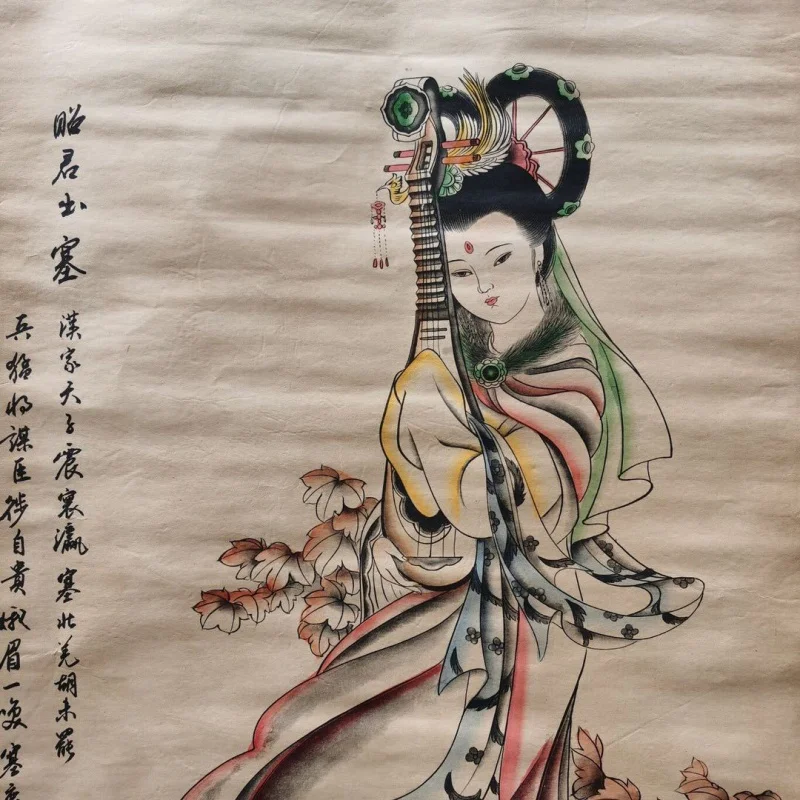 昭君出塞
漢家天子震寰瀛塞北羌胡未罷
兵猛將謀臣徒自貴蛾眉一喚塞